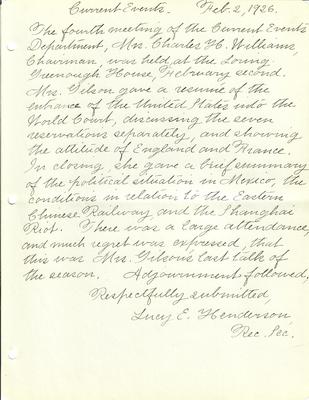 Current Events. Feb. 2, 1926.
The fourth meeting of the Current Events
Department, Mrs. Charles H. Williams,
Chairman, was held, at the Loring-
Greenough House, February second.
Mrs. Gilson gave a resume of the
entrance of the United States into the
World Court, discussing the seven
reservations separately, and showing
the attitude of England and France.
In closing, she gave a brief summary
of the political situation in Mexico, the
conditions in relation to the Eastern
Chinese Railway and the Shanghai
Riot. There was a large attendance,
and much regret was expressed, that
this was Mrs. Gilson's last talk of
the season. Adjournment followed,
Respectfully submitted,
Lucy E. Henderson
Rec. Sec.